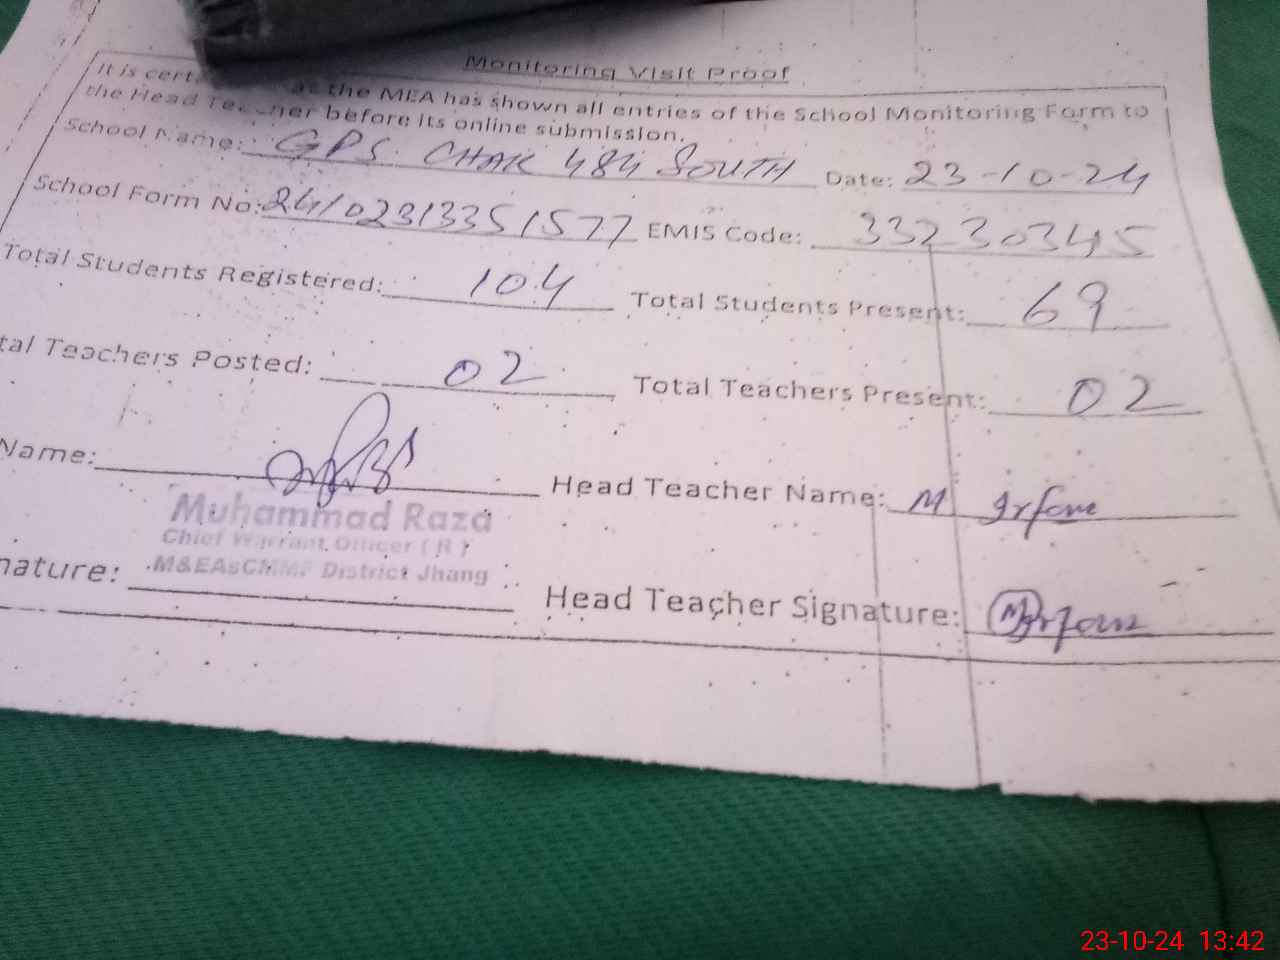 Monitoring Visit Proof
It is cert at the MEA has shown all entries of the School Monitoring Form to
the Head Teacher before its online submission.
School Name: GPS CHAK 484 SOUTH Date: 23-10-24
School Form No: 24102313351577 EMIS Code: 33230345
Total Students Registered: 104 Total Students Present: 69
tal Teachers Posted: 02 Total Teachers Present: 02
Name: Head Teacher Name: M Irfan
Muhammad Raza
Chief Warrant Officer (R)
M&EAsCMMF District Jhang
nature: Head Teacher Signature: M Irfan
23-10-24 13:42